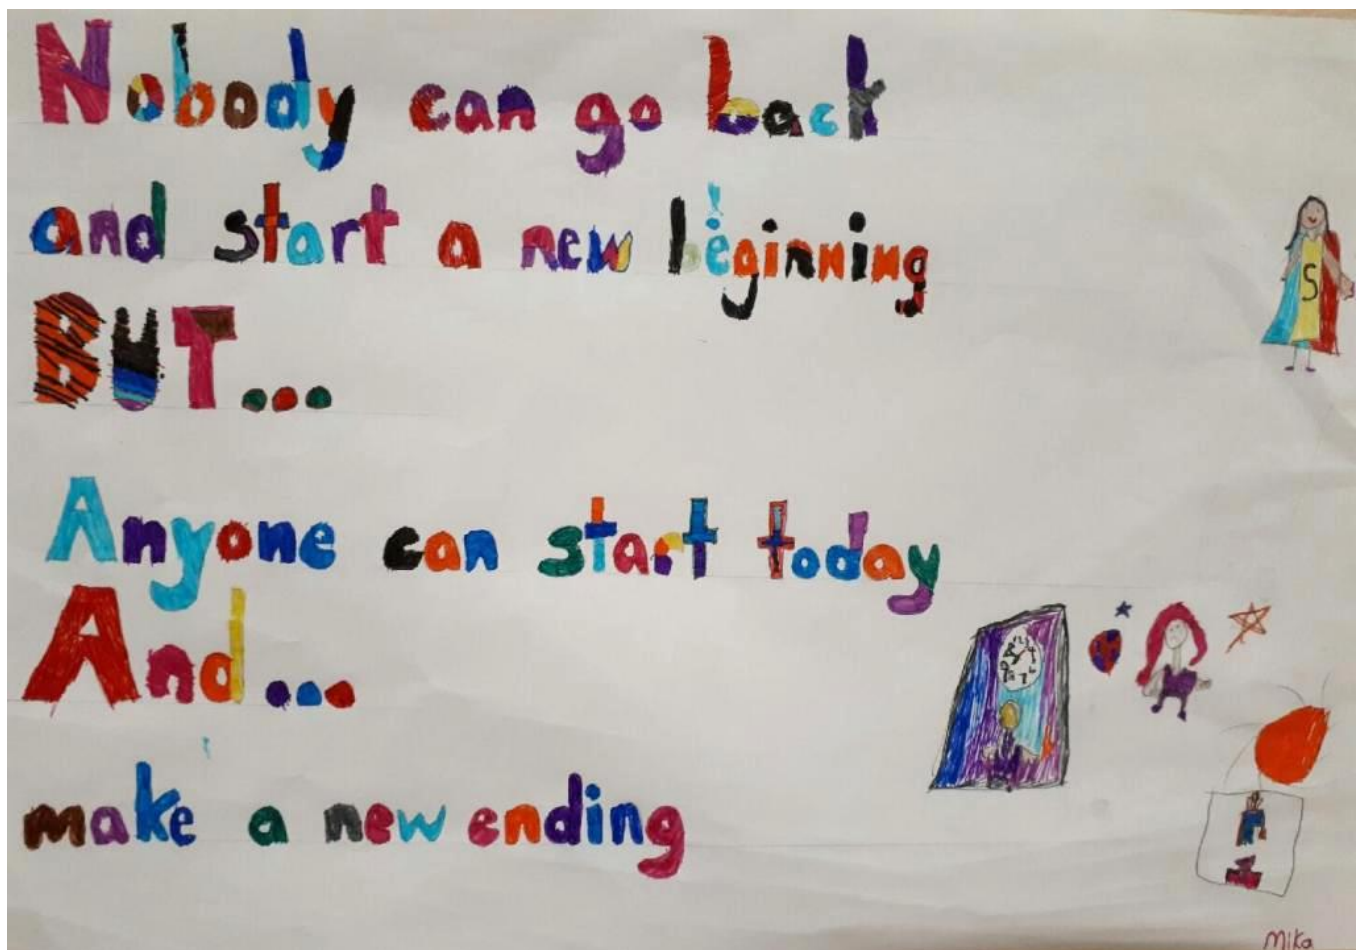 Nobody can go back
and start a new beginning
BUT...
Anyone can start today
And...
make a new ending
S
Mika